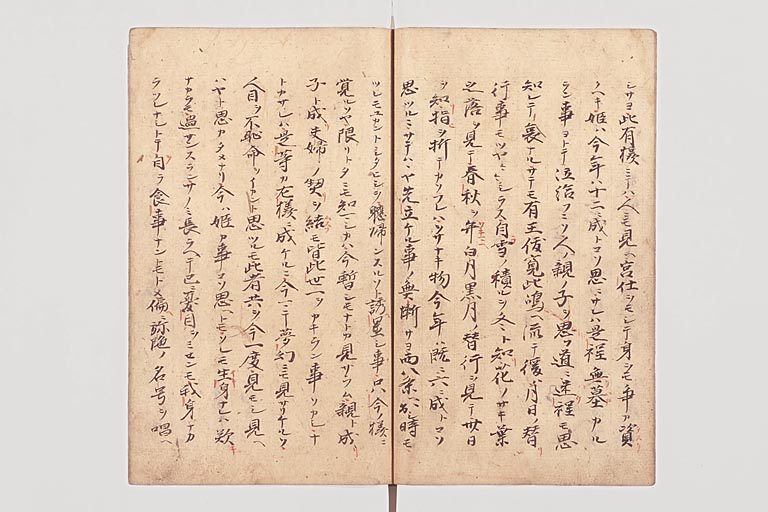 シサヨ此有様ニテハ人ニモ見ヘ宮仕シモシテ身シモ争カ資
クヘキ姫ハ今年ハ十二ニ成トコソ思ニサレハ是程無墓カル
ラン事ヨトテ泣給フニソ人ノ親ノ子ヲ思フ道ニ迷程モ思
知レテ哀ナルサテモ有王俊寛此嶋ヘ流テ後ハ月日ノ替
行事モツヤツヤシラス自雪ノ積ルヲ冬ト知花ノサキ葉
之落ヲ見テ春秋ヲ年白月黒月ノ替行ヲ見テ卅日
ヲ知指ヲ折テカソフレハヲサナキ物今年ハ既ニ六ニ成トコソ
思ツルニサテハハヤ先立ケル事ノ無慙サヨ西八条ヘ出シ時モ
ツレモユカントシタヒシヲ軈帰ンスルソト誘置シ事只今ノ様ニ
覚ルソヤ限リトタニモ知シカハ今暫シモナトカ見サラム親ト成
子ト成夫婦ノ契ヲ結モ皆此世一ツニカキラン事ソカシナ
トカサレハ是等カ左様ニ成ケルニ今ニテ夢幻ニモ見サリケルソ
人目ヲ不恥命ヲイカント思ツルモ此者共ヲ今一度見モシ見ヘ
ハヤト思カタメナリ今ハ姫カ事コソ思ヘトモソレモ生身ナレハ歎
ナカラモ過サンスランサノミ長ラヘテ已ニ憂目ヲミセンモ我身ナカ
ラツレナシトテ自ラ食事ナントモトメ偏弥陀ノ名号ヲ唱ヘ